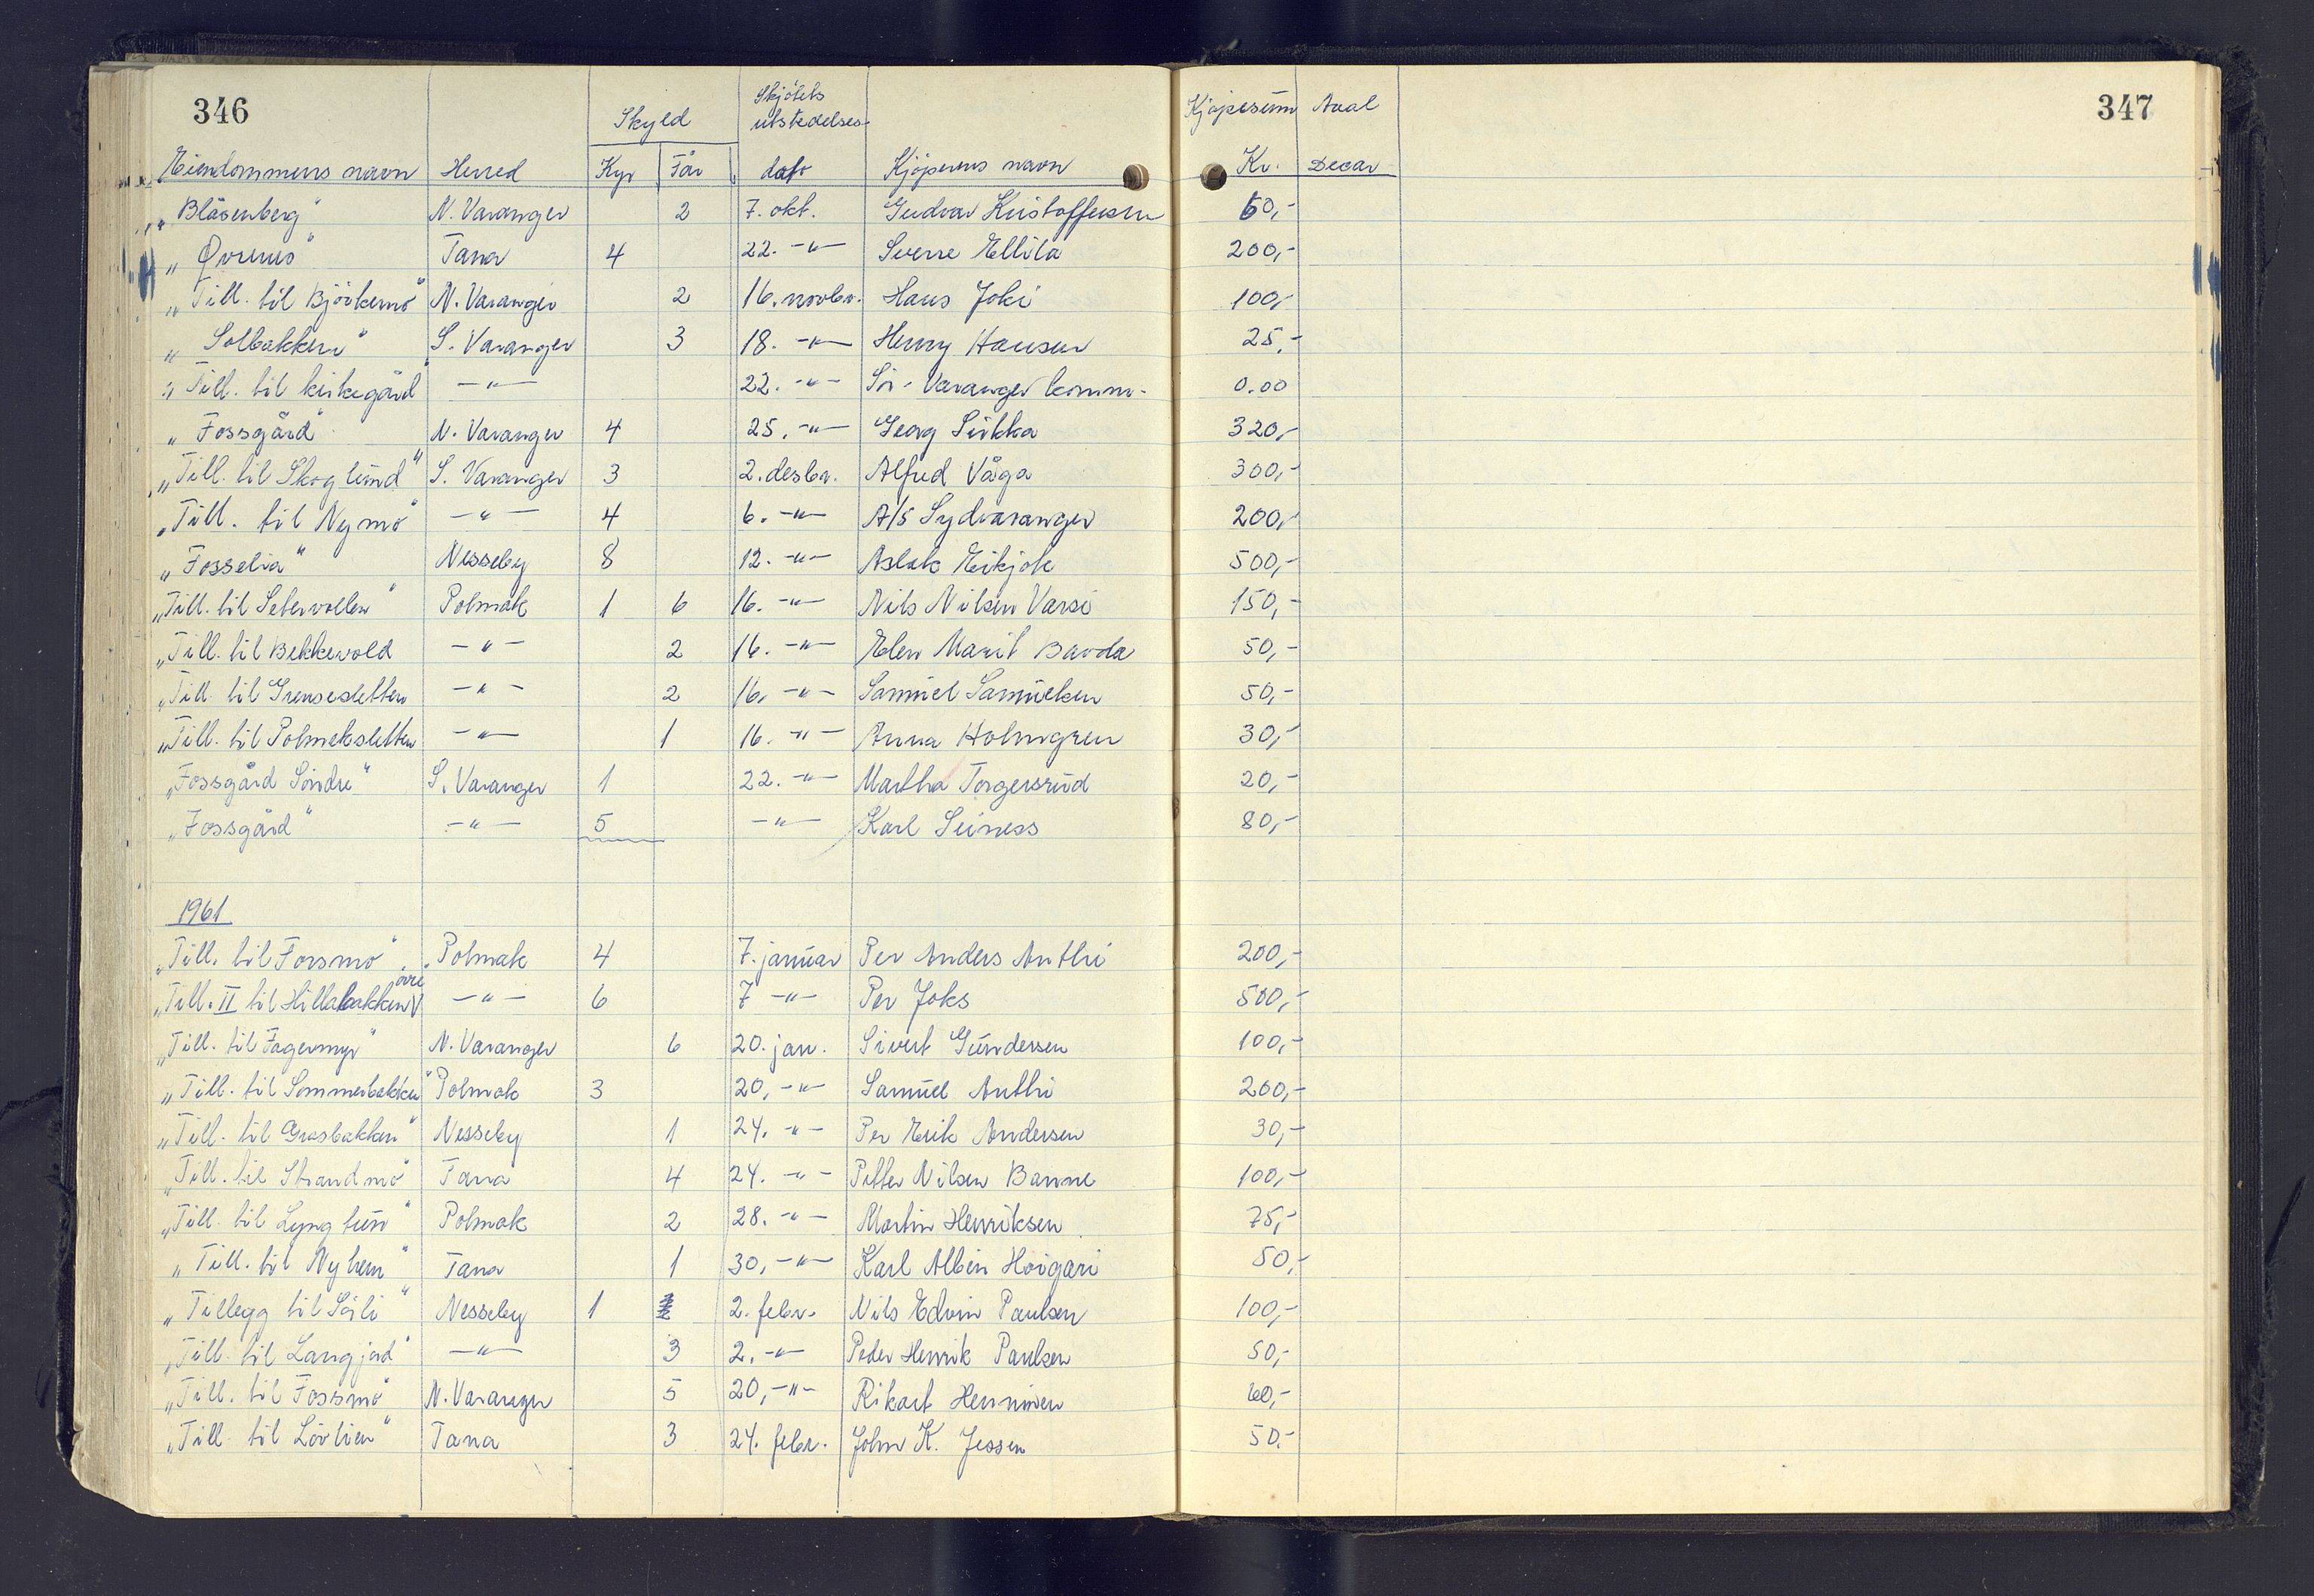 346
347
Skyld
Skjötets utstedelses- dato
Kjøpesum Areal
Eiendommens navn Herred Kyr Får Kjöperens navn Kr. Decar
„Blåsenberg" N. Varanger 2 7. okt. Gudvar Kristoffersen 60,-
„ Övrenes" Tana 4 22. -"- Sverre Ellila 200,-
„Till. til Björkemo" N. Varanger 2 16. novbr. Hans Joki 100,-
„ Solbakken" S. Varanger 3 18. -"- Henry Hansen 25,-
„Till. til kirkegård" -"- 22. -"- Sör-Varanger komm. 0.00
„ Fossgård" N. Varanger 4 25. -"- Georg Sirkka 320,-
„Till. til Skoglund" S. Varanger 3 2. desbr. Alfred Våga 300,-
„Till. til Nymo" -"- 4 6. -"- A/S Sydvaranger 200,-
„Fosselia" Nesseby 8 12. -"- Aslak Eikjok 500,-
„Till. til Setervollen" Polmak 1 6 16. -"- Nils Nilsen Varsi 150,-
„Till. til Bekkevold -"- 2 16. -"- Elen Marit Bavda 50,-
„Till. til Grensesletten -"- 2 16. -"- Samuel Samuelsen 50,-
„Till. til Polmaksletten -"- 1 16. -"- Anna Holmgren 30,-
„Fossgård Söndre" S. Varanger 1 22. -"- Martha Torgersrud 20,-
„Fossgård" -"- 5 -"- Karl Seiness 80,-
1961
„Till. til Forsmo" Polmak 4 7. januar Per Anders Anthi 200,-
„Till. II til Hillabakken övre" -"- 6 7 -"- Per Joks 500,-
„Till. til Fagermyr" N. Varanger 6 20. jan. Sivert Gundersen 100,-
„Till. til Sommerbakken" Polmak 3 20, -"- Samuel Anthi 200,-
„Till. til Grasbakken" Nesseby 1 24. -"- Per Erik Andersen 30,-
„Till. til Strandmo" Tana 4 24. -"- Petter Nilsen Banne 100,-
„Till. til Lyngtun" Polmak 2 28. -"- Martin Henriksen 75,-
„Till. til Nyhem" Tana 1 30, -"- Karl Albin Hoigari 50,-
„Tillegg til Sörli" Nesseby 1 2. febr. Nils Edvin Paulsen 100,-
„Till. til Langjord" -"- 3 2. -"- Peder Henrik Paulsen 50,-
„Till. til Fossmo" N. Varanger 5 20, -"- Rikart Henninen 60,-
„Till. til Lövlien" Tana 3 24. febr. John K. Jessen 50.-